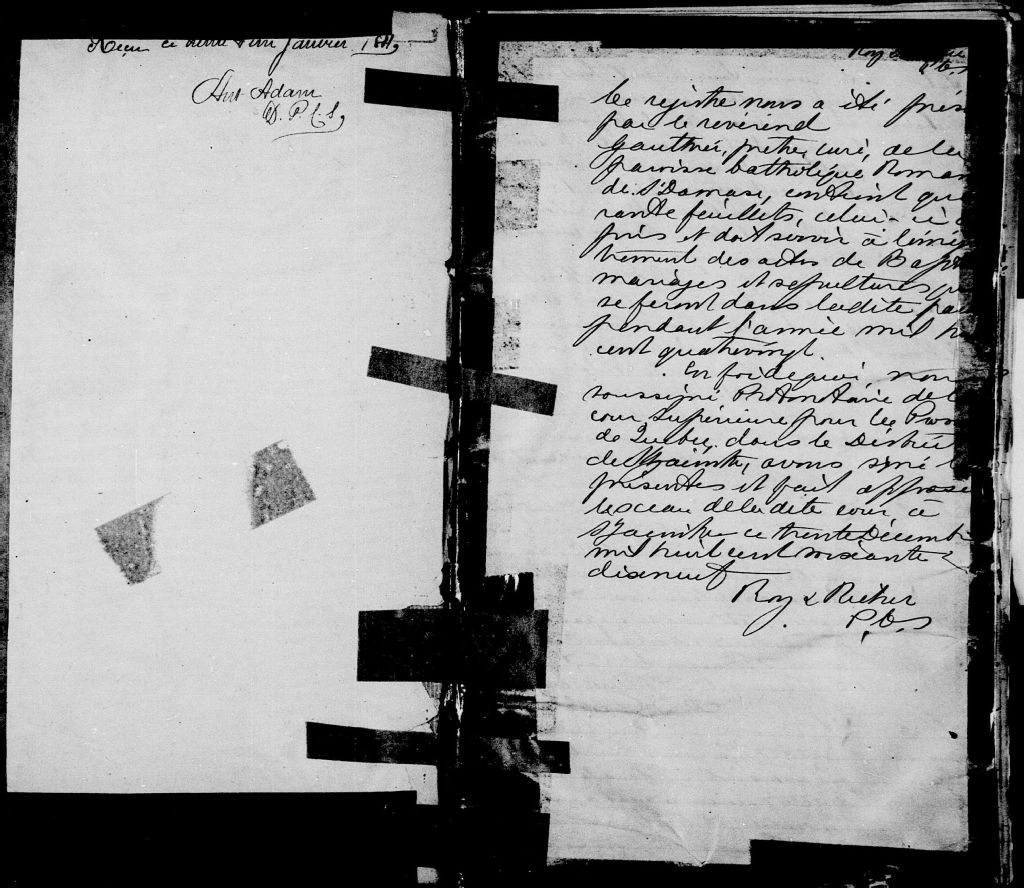 Reçu ce vingt & un Janvier 1881,
Ant Adam
D. P. C. S,
Roy &
P. C. S
Ce registre nous a été prés
par le révérend
Gauthier, prêtre, curé, de la
paroisse Catholique Romai
de St Damase, contient qua
rante feuillets, celui-ci
pris et doit servir à l'enré
trement des actes de Bapt
mariages et sépultures qu
se feront dans ladite par
pendant l'année mil h
cent quatrevingt.
En foi de quoi, nous
soussigné Protonotaire de l
cour Supérieure pour le Prov
de Québec, dans le District
de St Hyacinthe, avons signé l
présentes et fait apposé
le sceau de la dite cour à
St Hyacinthe ce trente Décemb
mil huit cent soixante &
dixneuf
Roy & Richer
P. C. S